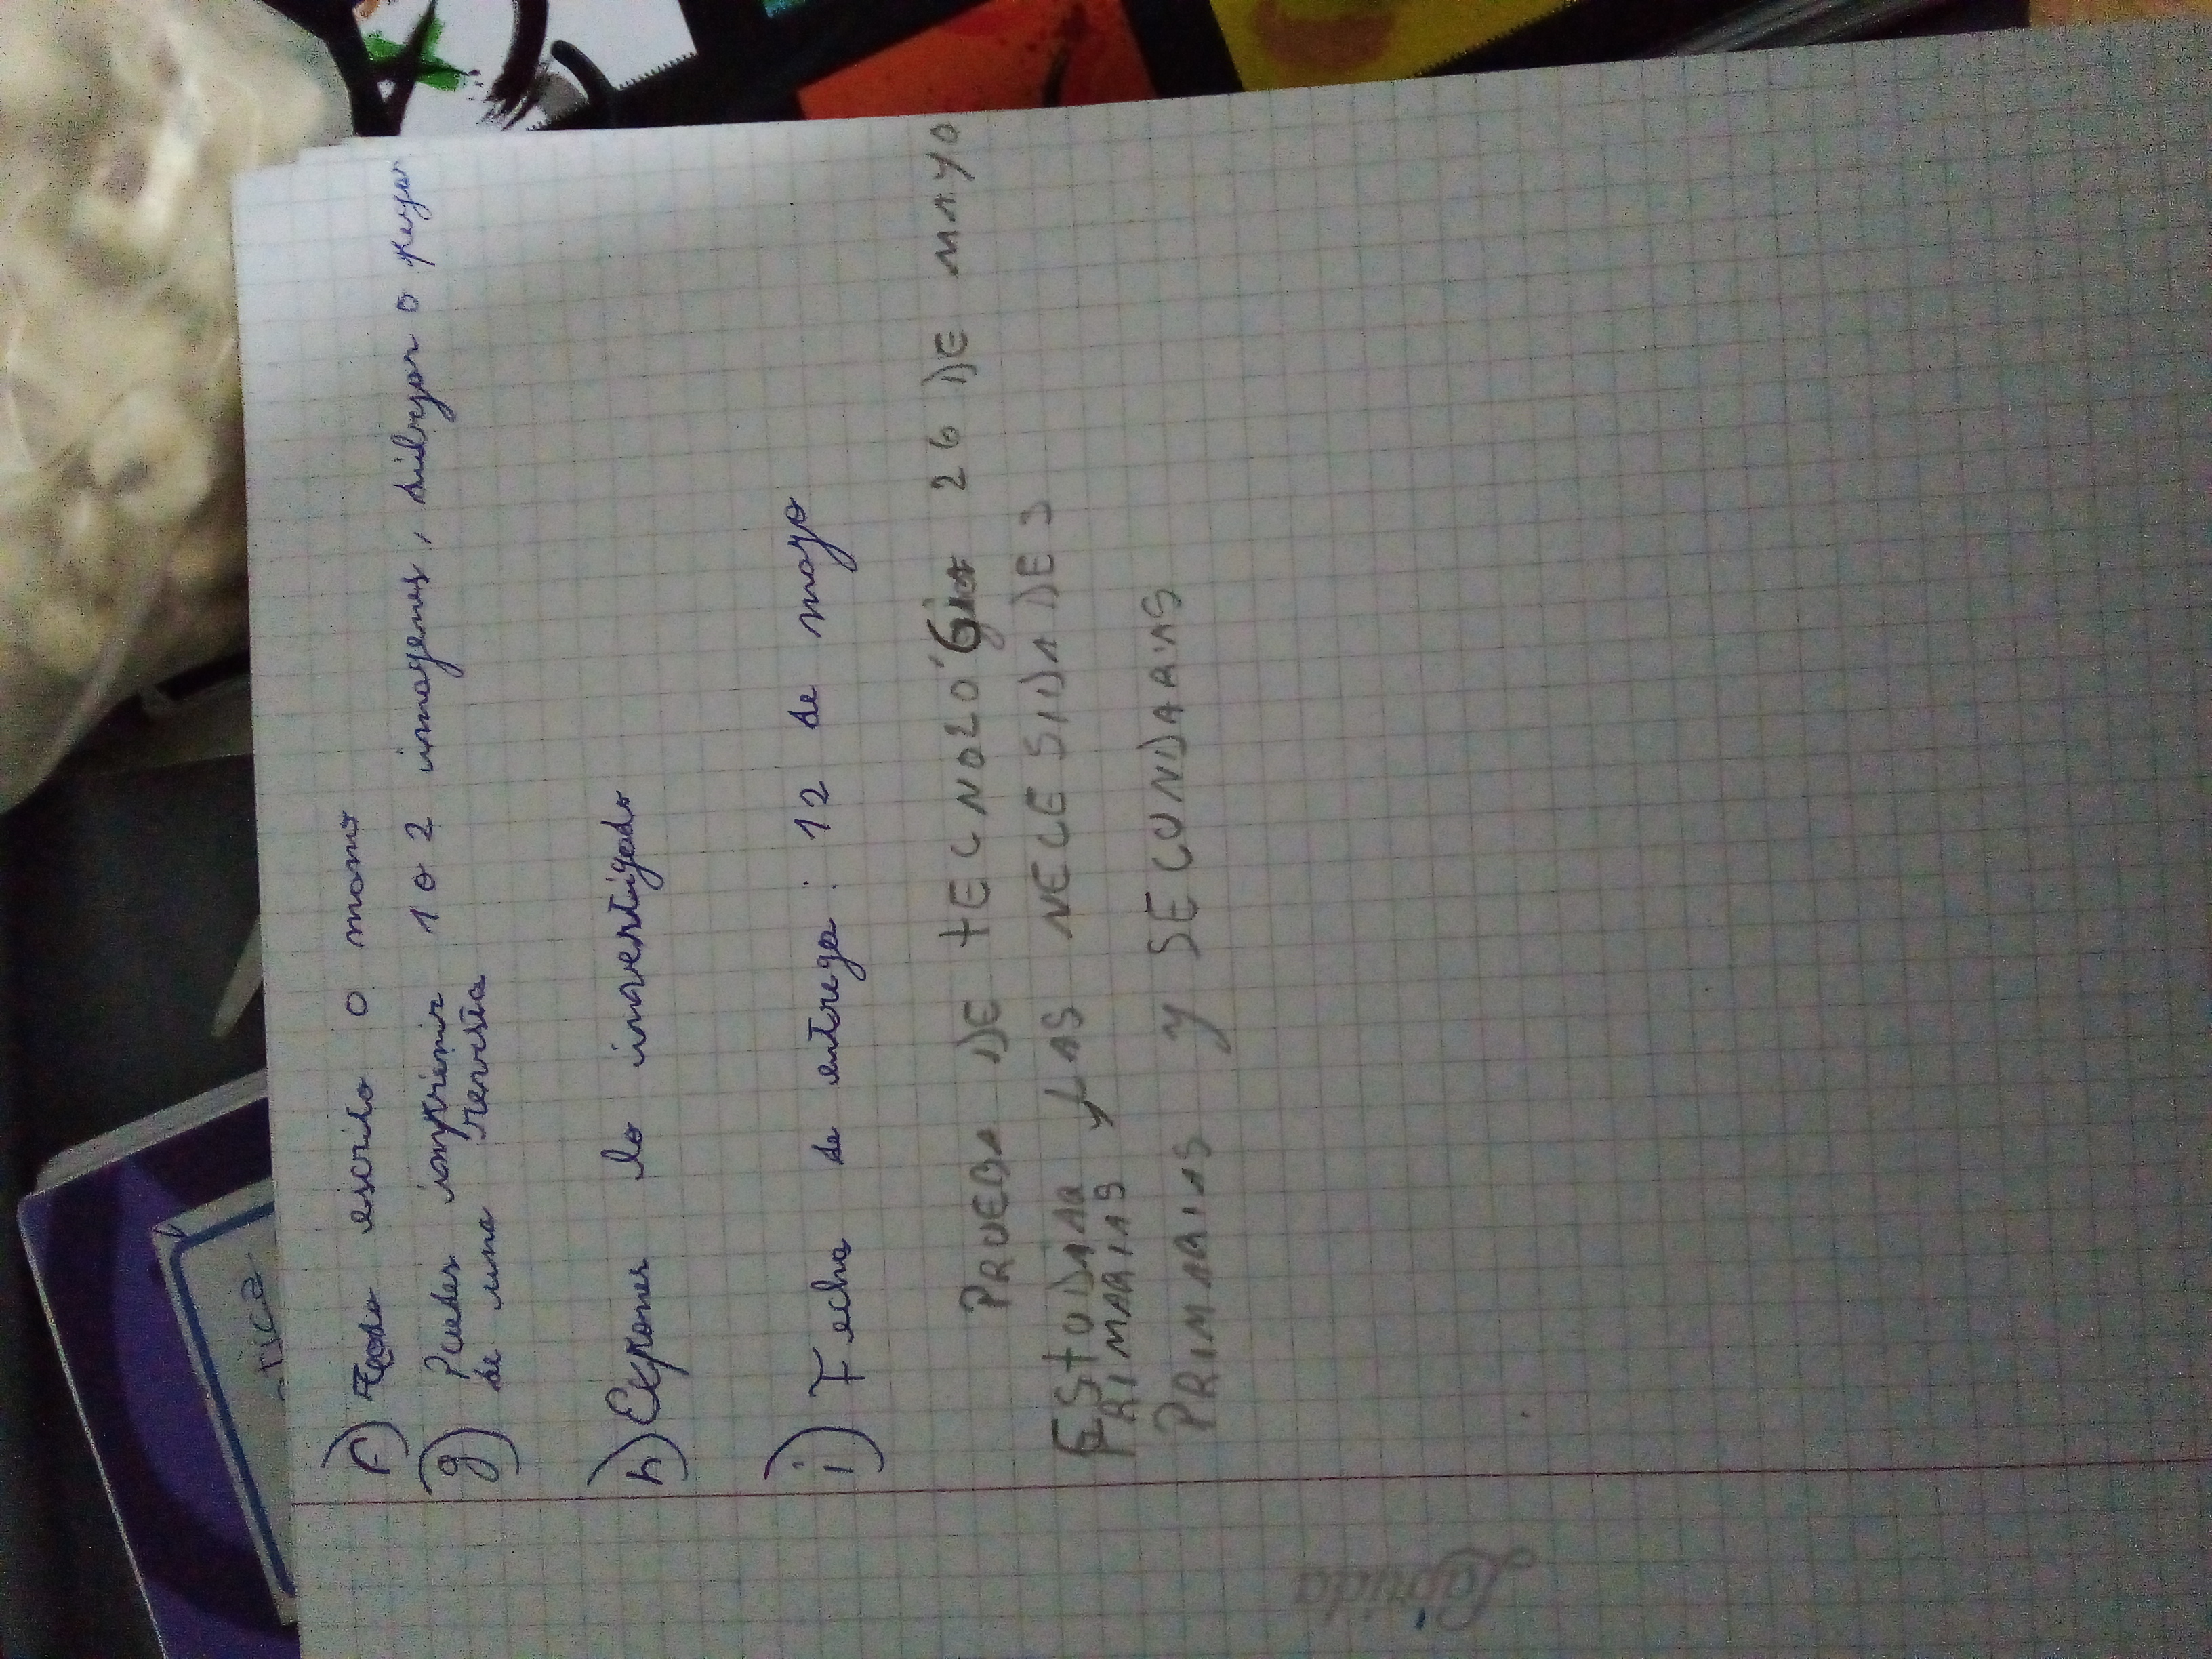 f) Todo escrito a mano
g) Puedes imprimir 1 o 2 imagenes, dibujar o pegar
de una revista
h) Expones lo investigado
i) Fecha de entrega : 12 de mayo
PRUEBA DE TECNOLOGÍA 26 DE MAYO
ESTUDIAR LAS NECESIDADES
PRIMARIAS y
PRIMARIAS y SECUNDARIAS
TICA